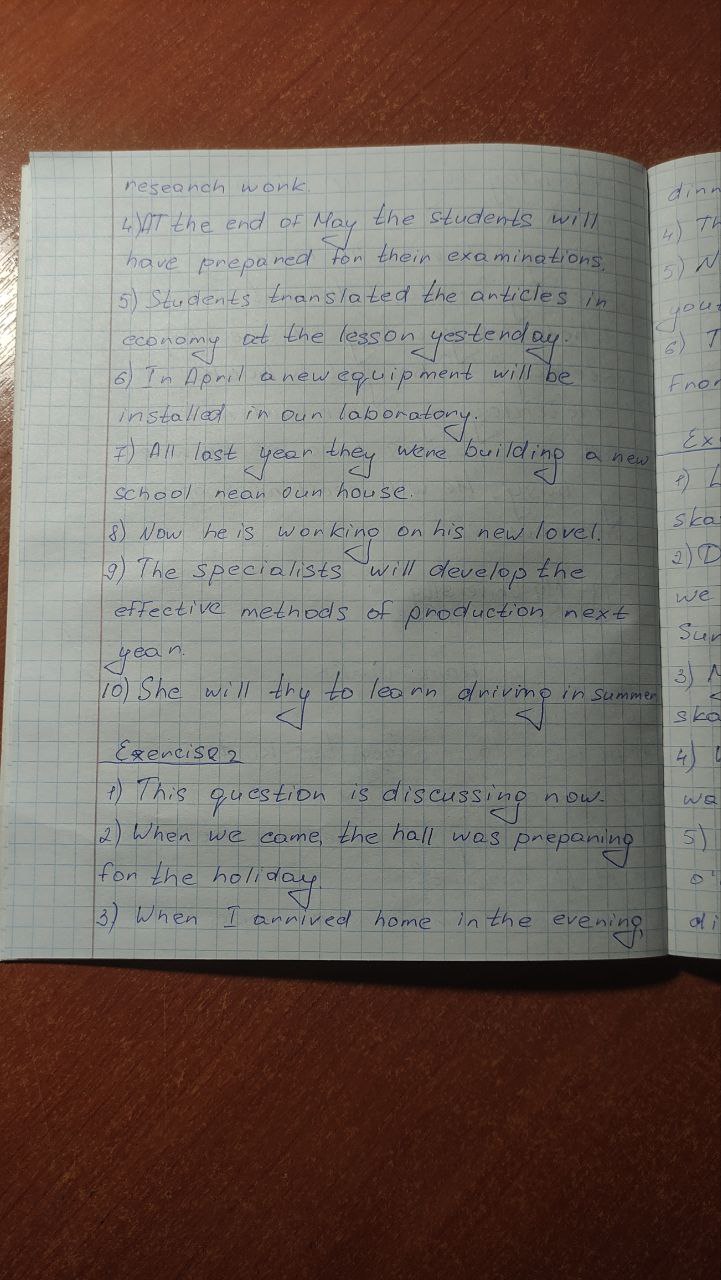 research work.
4) AT the end of May the students will
have prepared for their examinations.
5) Students translated the articles in
economy at the lesson yesterday.
6) In April a new equipment will be
installed in our laboratory.
7) All last year they were building a new
school near our house.
8) Now he is working on his new lovel.
9) The specialists will develop the
effective methods of production next
year.
10) She will try to learn driving in summer
Exercise 2
1) This question is discussing now.
2) When we came, the hall was preparing
for the holiday.
3) When I arrived home in the evening,
dinn
4) Th
5) N
your
6) T
Fron
Ex
1) L
ska
2) D
we
Sun
3) M
ska
4)
wa
5)
o'
di